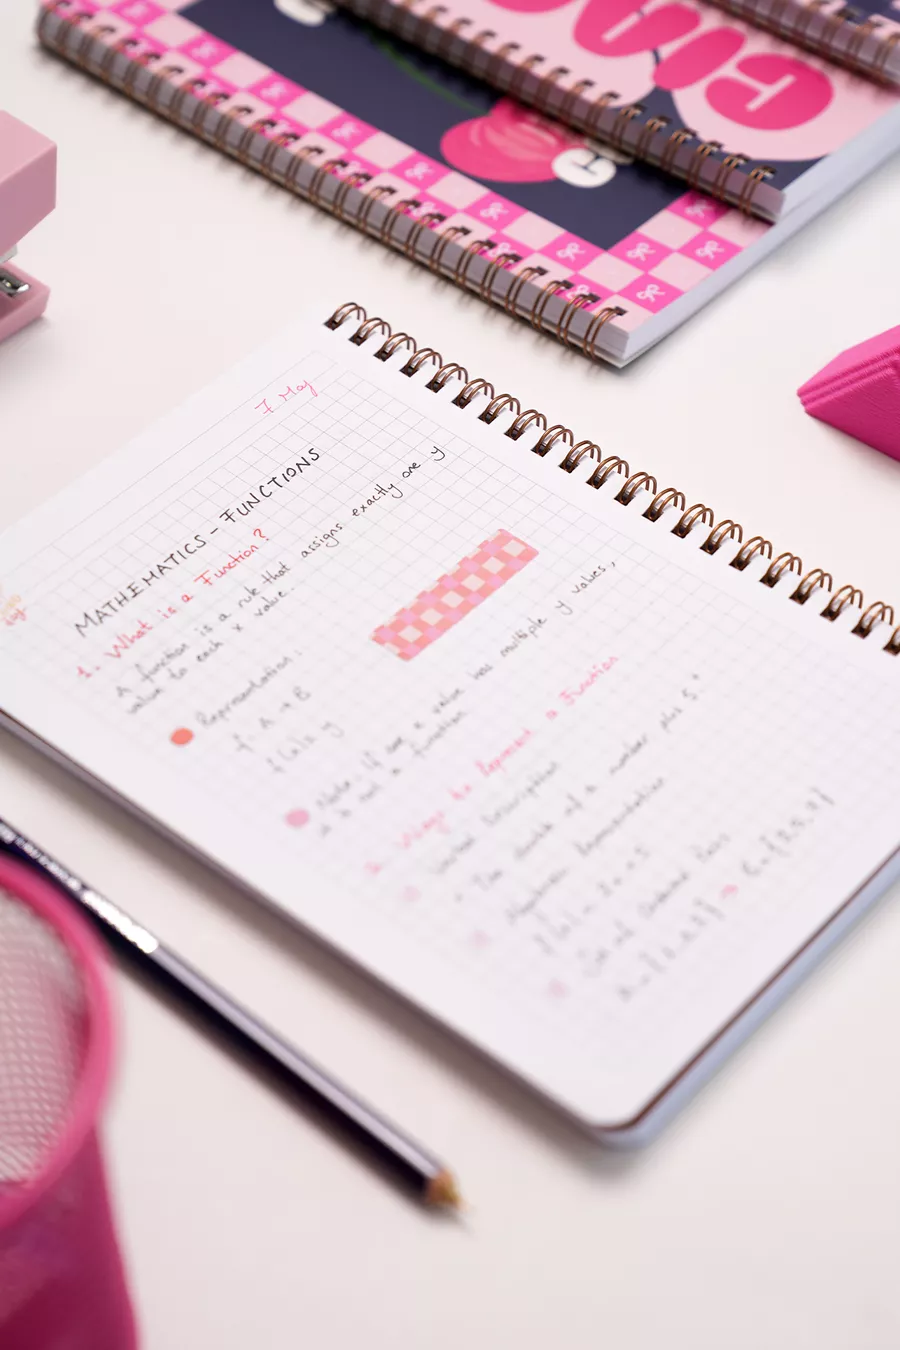 7 May
MATHEMATICS - FUNCTIONS
1. What is a Function?
A function is a rule that assigns exactly one y
value to each x value.
Representation:
f: A → B
f(x) = y
Note: If one x value has multiple y values,
it is not a function
2. Ways to Represent a Function
Verbal Description
"The double of a number plus 5"
Algebraic Representation
Set of Ordered Pairs